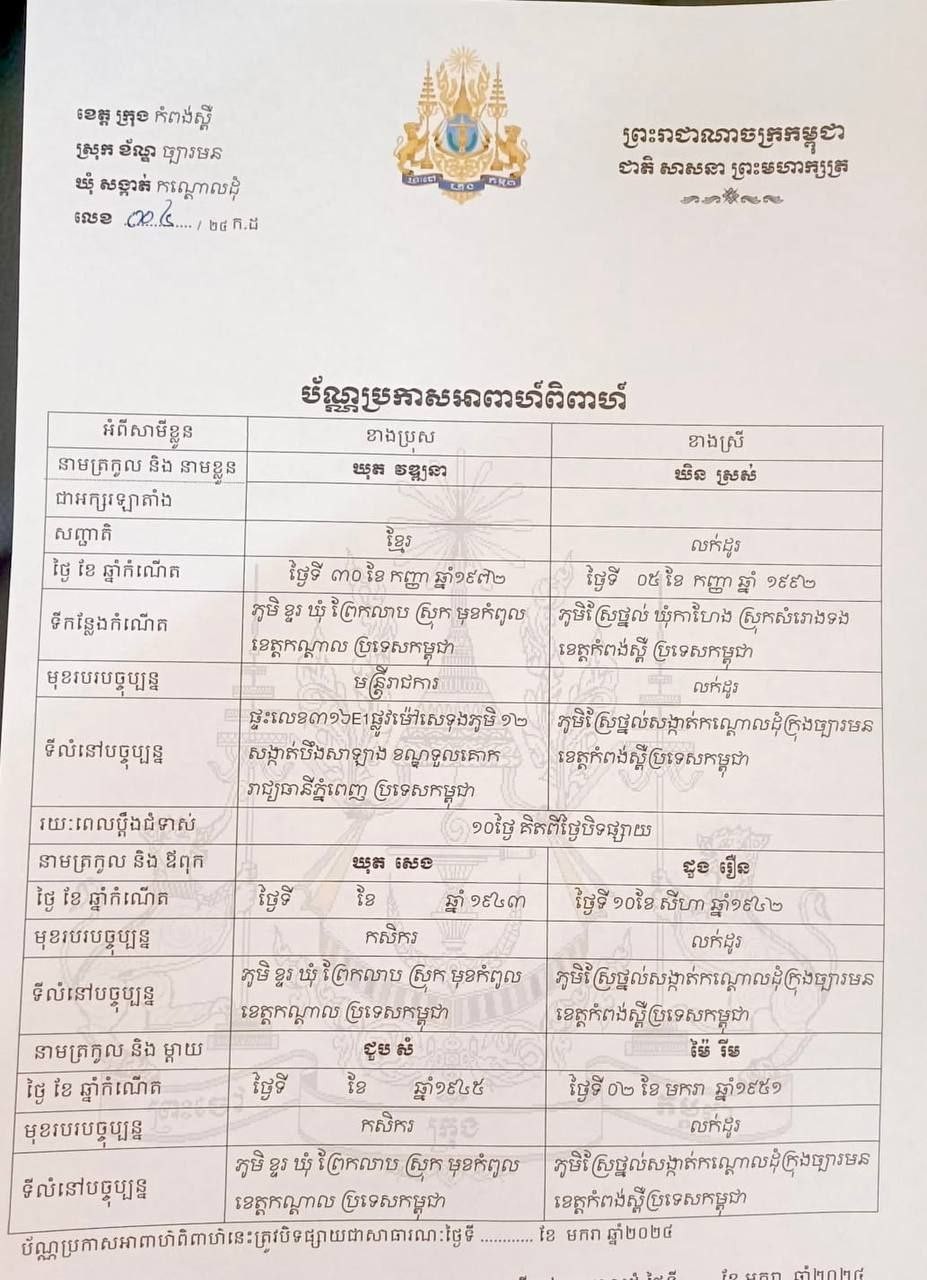 ខេត្ត ក្រុង កំពង់ស្ពឺ
ស្រុក ខ័ណ្ឌ ច្បារមន
ឃុំ សង្កាត់ កណ្តោលដុំ
លេខ ............ / ២៤ ក.ដ
ព្រះរាជាណាចក្រកម្ពុជា
ជាតិ សាសនា ព្រះមហាក្សត្រ
ប័ណ្ណប្រកាសអាពាហ៍ពិពាហ៍
អំពីសាមីខ្លួន ខាងប្រុស ខាងស្រី
នាមត្រកូល និង នាមខ្លួន ឃុត វឌ្ឍនា ឃិន ស្រស់
ជាអក្សរឡាតាំង
សញ្ជាតិ ខ្មែរ លក់ដូរ
ថ្ងៃ ខែ ឆ្នាំកំណើត ថ្ងៃទី ៣០ ខែ កញ្ញា ឆ្នាំ១៩៧២ ថ្ងៃទី ០៥ ខែ កញ្ញា ឆ្នាំ ១៩៩២
ទីកន្លែងកំណើត ភូមិ ខ្ទរ ឃុំ ព្រែកលាប ស្រុក មុខកំពូល ភូមិស្រែថ្នល់ ឃុំកាហែង ស្រុកសំរោងទង
ខេត្តកណ្តាល ប្រទេសកម្ពុជា ខេត្តកំពង់ស្ពឺ ប្រទេសកម្ពុជា
មុខរបរបច្ចុប្បន្ន មន្ត្រីរាជការ លក់ដូរ
ទីលំនៅបច្ចុប្បន្ន ផ្ទះលេខ៣១៦E1ផ្លូវម៉ៅសេទុងភូមិ ១២ ភូមិស្រែថ្នល់សង្កាត់កណ្តោលដុំក្រុងច្បារមន
សង្កាត់បឹងសាឡាង ខណ្ឌទួលគោក ខេត្តកំពង់ស្ពឺប្រទេសកម្ពុជា
រាជ្យធានីភ្នំពេញ ប្រទេសកម្ពុជា
រយៈពេលប្តឹងជំទាស់ ១០ថ្ងៃ គិតពីថ្ងៃបិទផ្សាយ
នាមត្រកូល និង ឪពុក ឃុត សេង ដួង រឿន
ថ្ងៃ ខែ ឆ្នាំកំណើត ថ្ងៃទី ខែ ឆ្នាំ ១៩៤៣ ថ្ងៃទី ១០ខែ សីហា ឆ្នាំ១៩៤២
មុខរបរបច្ចុប្បន្ន កសិករ លក់ដូរ
ទីលំនៅបច្ចុប្បន្ន ភូមិ ខ្ទរ ឃុំ ព្រែកលាប ស្រុក មុខកំពូល ភូមិស្រែថ្នល់សង្កាត់កណ្តោលដុំក្រុងច្បារមន
ខេត្តកណ្តាល ប្រទេសកម្ពុជា ខេត្តកំពង់ស្ពឺប្រទេសកម្ពុជា
នាមត្រកូល និង ម្តាយ ជួប សំ ម៉ៃ រីម
ថ្ងៃ ខែ ឆ្នាំកំណើត ថ្ងៃទី ខែ ឆ្នាំ១៩៤៥ ថ្ងៃទី ០២ ខែ មករា ឆ្នាំ១៩៥១
មុខរបរបច្ចុប្បន្ន កសិករ លក់ដូរ
ទីលំនៅបច្ចុប្បន្ន ភូមិ ខ្ទរ ឃុំ ព្រែកលាប ស្រុក មុខកំពូល ភូមិស្រែថ្នល់សង្កាត់កណ្តោលដុំក្រុងច្បារមន
ខេត្តកណ្តាល ប្រទេសកម្ពុជា ខេត្តកំពង់ស្ពឺប្រទេសកម្ពុជា
ប័ណ្ណប្រកាសអាពាហ៍ពិពាហ៍នេះត្រូវបិទផ្សាយជាសាធារណៈថ្ងៃទី ............ ខែ មករា ឆ្នាំ២០២៤
ខែ មករា ឆ្នាំ២០២៤